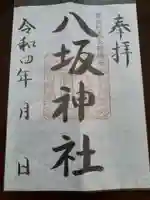 奉拝
八坂神社
令和四年 月 日